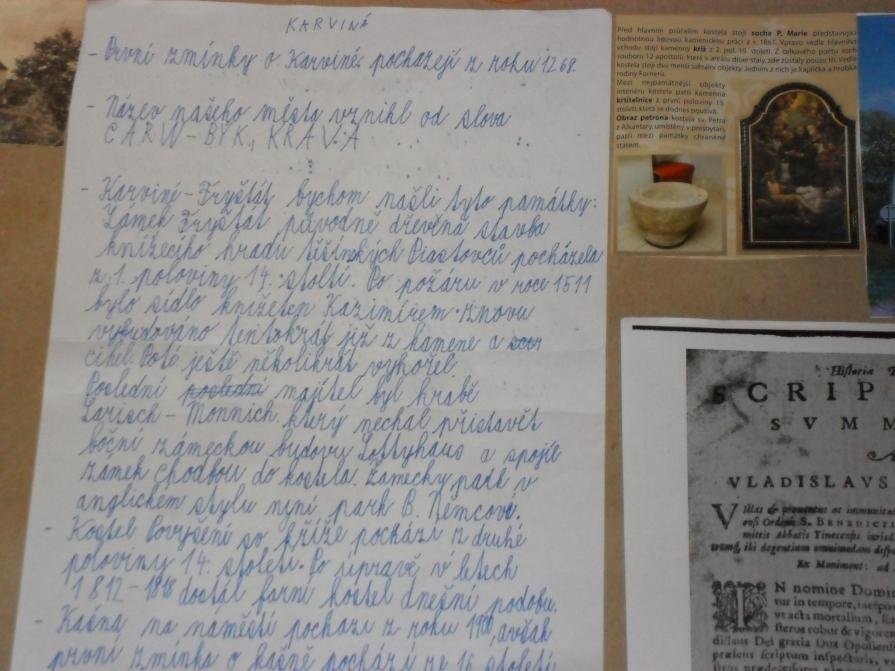 KARVINÁ
- První zmínky o Karviné pocházejí z roku 1268.
- Název našeho města vznikl od slova
CARW - BYK, KRÁVA
- Karviné - Fryštát bychom našli tyto památky:
Zámek Fryštát původně dřevěná stavba
knížecího hradu těšínských Piastovců pocházela
z 1. poloviny 14. stoltí. Po požáru v roce 1511
bylo sídlo knížetem Kazimírem znovu
vybudováno tentokrát již z kamene a
cihel. Poté ještě několikrát vyhořel.
Poslední poslední majitel byl hrabě
Larisch - Mönnich který nechal přistavět
boční zámeckou budovu Lottyhaus a spojil
zámek chodbou do kostela. Zámecký park v
anglickém stylu nyní park B. Němcové.
- Kostel Povýšení sv kříže pochází z druhé
poloviny 14. století. Po úpravě v letech
1812-1818 dostál farní kostel dnešní podobu.
- Kašna na náměstí pochází z roku 1900, avšak
první zmínka o kašně pochází ze 16 století
Před hlavním průčelím kostela stojí socha P. Marie představující
hodnotnou lidovou kamenickou práci z r. 1861. Vpravo vedle hlavního
vchodu stojí kamenný kříž z 2. pol. 19. století. Z celkového počtu soch
souboru 12 apoštolů, které v areálu dříve stály, zde zůstaly pouze tři. Vedle
kostela stojí dva menší sakrální objekty. Jedním z nich je kaplička a hrobka
rodiny Fornerů.
Mezi nejpamátnější objekty
interiéru kostela patří kamenná
křtitelnice z první poloviny 15.
století, která se dodnes používá.
Obraz patrona kostela sv. Petra
z Alkantary, umístěný v presbytáři,
patří mezi památky chráněné
státem.
Historia
SCRIP
SVMM
VLADISLAVS
Villas & ac immunitat
S. BENEDICI
mittit Abbatis Tinecensis
Ex Moniment: ad
IN nomine Domin
tur in tempore,
vt acta mortalium,
fterus robur & vigore
Dei gratia Dux Opolien
præsens scriptum